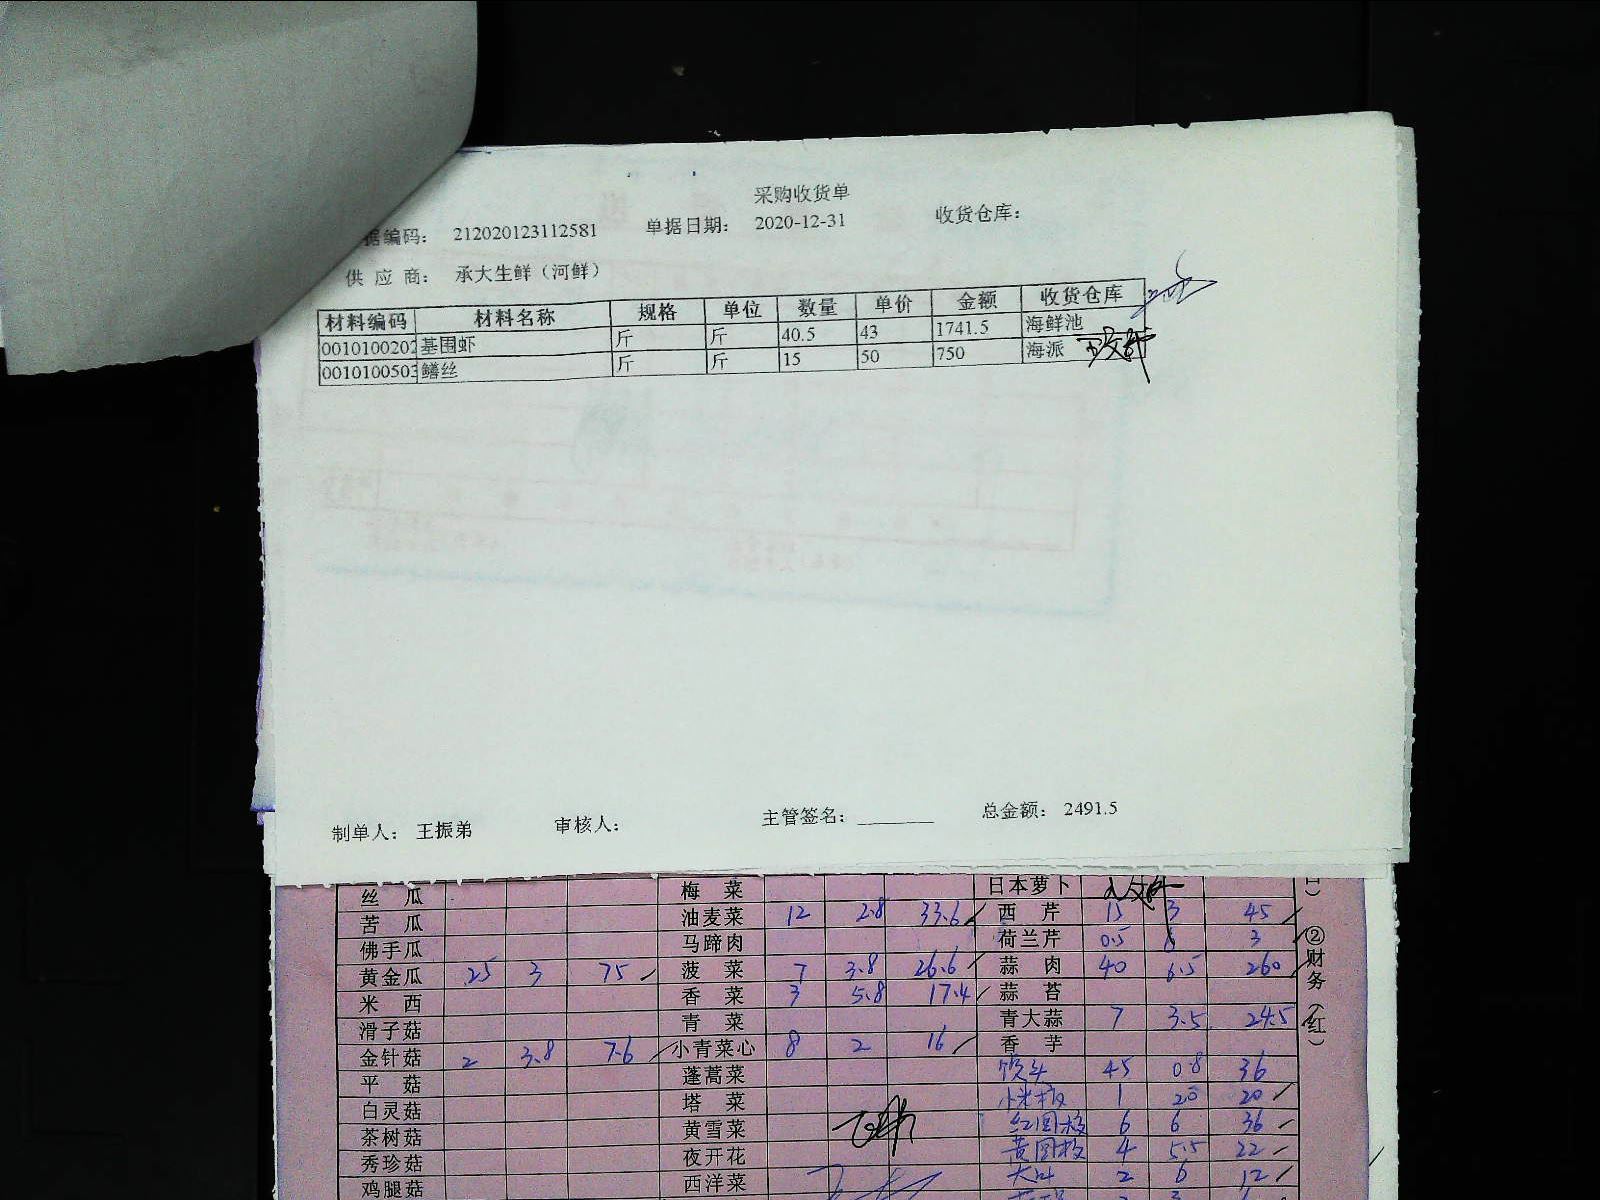 采购收货单
据编码: 212020123112581 单据日期: 2020-12-31 收货仓库:
供 应 商: 承大生鲜（河鲜）
材料编码 材料名称 规格 单位 数量 单价 金额 收货仓库
0010100202 基围虾 斤 斤 40.5 43 1741.5 海鲜池
0010100503 鳝丝 斤 斤 15 50 750 海派
制单人: 王振弟 审核人: 主管签名: 总金额: 2491.5
丝 瓜 梅 菜 日本萝卜
苦 瓜 油麦菜 12 2.8 33.6 西 芹 15 3 45
佛手瓜 马蹄肉 荷兰芹 0.5 6 3
黄金瓜 25 3 75 菠 菜 7 3.8 26.6 蒜 肉 40 6.5 260
米 西 香 菜 3 5.8 17.4 蒜 苔
滑子菇 青 菜 青大蒜 7 3.5 24.5
金针菇 2 3.8 7.6 小青菜心 8 2 16 香 芋
平 菇 蓬蒿菜 馒头 45 0.8 36
白灵菇 塔 菜 1 20 20
茶树菇 黄雪菜 红圆椒 6 6 36
秀珍菇 夜开花 黄圆椒 4 5.5 22
鸡腿菇 西洋菜 2 6 12
②财务（红）